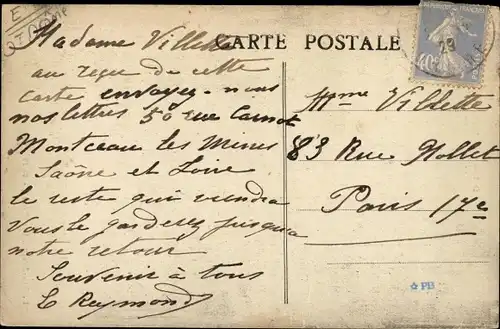 CARTE POSTALE
Madame Villette
au reçu de cette
carte envoyez-nous
nos lettres 50 rue Carnot
Montceau les Mines
Saône et Loire
le reste qui viendra
vous le garderez jusqua
notre retour
Souvenir à tous
E Raymond
40c
Mme Villette
83 Rue Nollet
Paris 17e
☆ PB